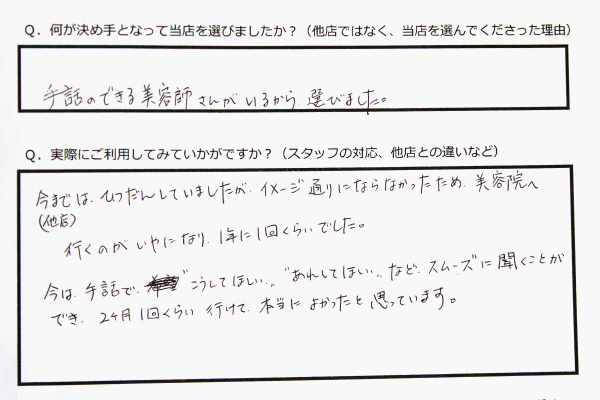 Q．何が決め手となって当店を選びましたか？（他店ではなく、当店を選んでくださった理由）
手話のできる美容師さんがいるから、選びました。
Q．実際にご利用してみていかがですか？（スタッフの対応、他店との違いなど）
今までは、ひつだんしていましたが、イメージ通りにならなかったため、美容院へ
（他店）
行くのがいやになり、1年に1回くらいでした。
今は、手話で、"こうしてほしい〟"あれしてほしい〟など、スムーズに聞くことが
でき、2ヶ月1回くらい行けて、本当によかったと思っています。